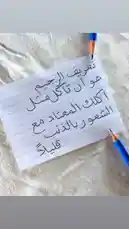 تعريف الرجيم
هو أن تأكل مثل
أكلك المعتاد مع
الشعور بالذنب